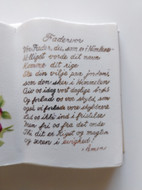 Fadervor
Vor Fader du, som er i Himlene
Helliget vorde dit navn
Komme dit rige
Ske din vilje paa jorden,
som den sker i Himmelen
Giv os idag vort daglige brød
Og forlad os vor skyld, som
også vi forlade vore skyldnere
Led os ikke ind i fristelse
Men fri os fra det onde
Thi dit er Riget og magten
og æren i evighed!
Amen